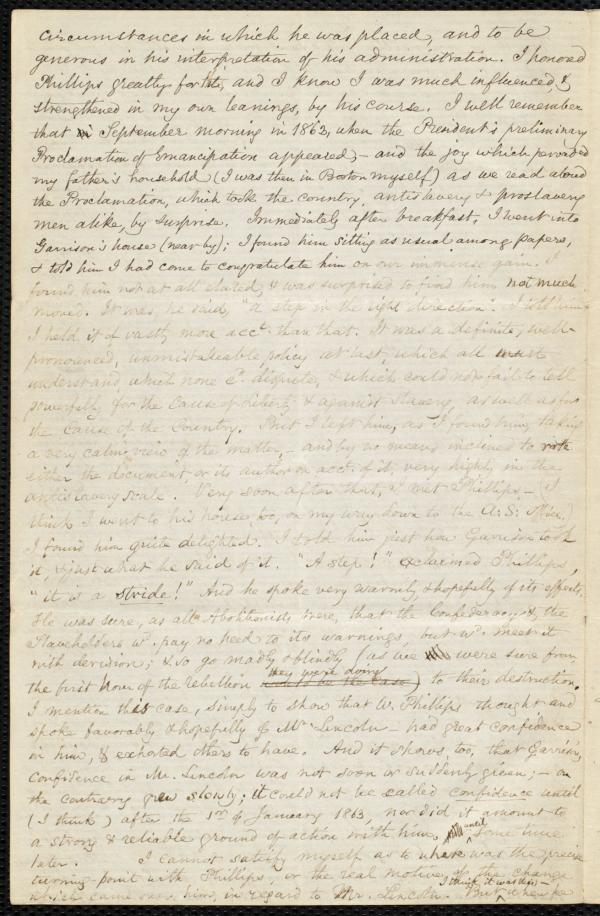 circumstances in which he was placed, and to be
generous in his interpretation of his administration. I honored
Phillips greatly for this, and I know I was much influenced, &
strengthened in my own leanings, by his course. I well remember
that September morning in 1862, when the President's preliminary
Proclamation of Emancipation appeared,– and the joy which pervaded
my father's household (I was then in Boston myself) as we read aloud
the Proclamation, which took the country, antislavery & proslavery
men alike, by surprise. Immediately after breakfast, I went into
Garrison's house (near by); I found him sitting as usual among papers,
& told him I had come to congratulate him on our immense gain. I
found him not at all elated, & was surprised to find him not much
moved. It was, he said, "a step in the right direction". I told him
I held it of vastly more acct. than that. It was a definite, well-
pronounced, unmistakeable policy at last, which all must
understand, which none cd. dispute, & which could not fail to tell
powerfully for the Cause of Liberty & against Slavery, as well as for
the Cause of the Country. But I left him, as I found him, taking
a very calm view of the matter,– and by no means inclined to rate
either the document, or its author on acct. of it, very high, in the
antislavery scale. Very soon after that, I met Phillips – (I
think I went to his house, too, on my way down to the A. S. Office.)
I found him quite delighted. I told him just how Garrison took
it, & just what he said of it. "A step!" exclaimed Phillips,
"it is a stride!" And he spoke very warmly & hopefully of its effects.
He was sure, as all Abolitionists were, that the Confederacy, & the
Slaveholders wd. pay no heed to its warnings, but wd. meet it
with derision; & so go madly & blindly (as we were sure from
the first hour of the Rebellion they were doing) to their destruction.
I mention this case, simply to show that W. Phillips thought and
spoke favorably & hopefully of Mr. Lincoln – had great confidence
in him, & exhorted others to have. And it shows, too, that Garrison's
confidence in Mr. Lincoln was not soon or suddenly given;– on
the contrary grew slowly; it could not be called confidence until
(I think) after the 1st of January 1863, nor did it amount to
a strong & reliable ground of action with him, until some time
later. I cannot satisfy myself as to where was the precise
turning-point with Phillips, or the real motive of the change
which came over him in regard to Mr. Lincoln. But I think it was when he